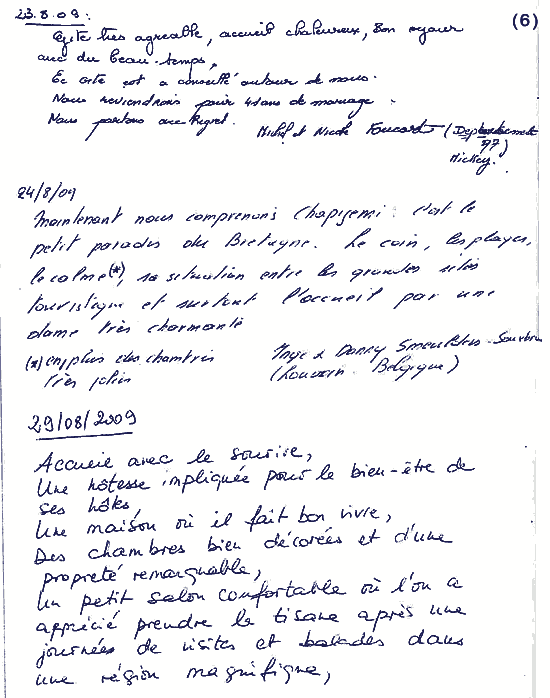 23.8.09:
(6)
Gite très agréable, accueil chaleureux, Bon séjour
avec du beau temps,
Ce gite est a conseillé autour de nous.
Nous reviendrons pour 41ans de mariage.
Nous partons avec Regret. Michel et Nicole Foucart (Departement
77)
Mickey.
24/8/09
Maintenant nous comprenons Chapigemi: c'est le
petit paradis du Bretagne. Le coin, les plages,
le calme(*), sa situation entre les grandes sites
touristique et surtout l'accueil par une
dame très charmante
(*) en plus des chambres
très jolies
Inge & Danny
(Louvain - Belgique)
29/08/2009
Accueil avec le sourire,
Une hôtesse impliquée pour le bien-être de
ses hôtes,
Une maison où il fait bon vivre,
Des chambres bien décorées et d'une
propreté remarquable,
Un petit salon comfortable où l'on a
apprécié prendre le tisane après une
journées de visites et balades dans
une région magnifique,